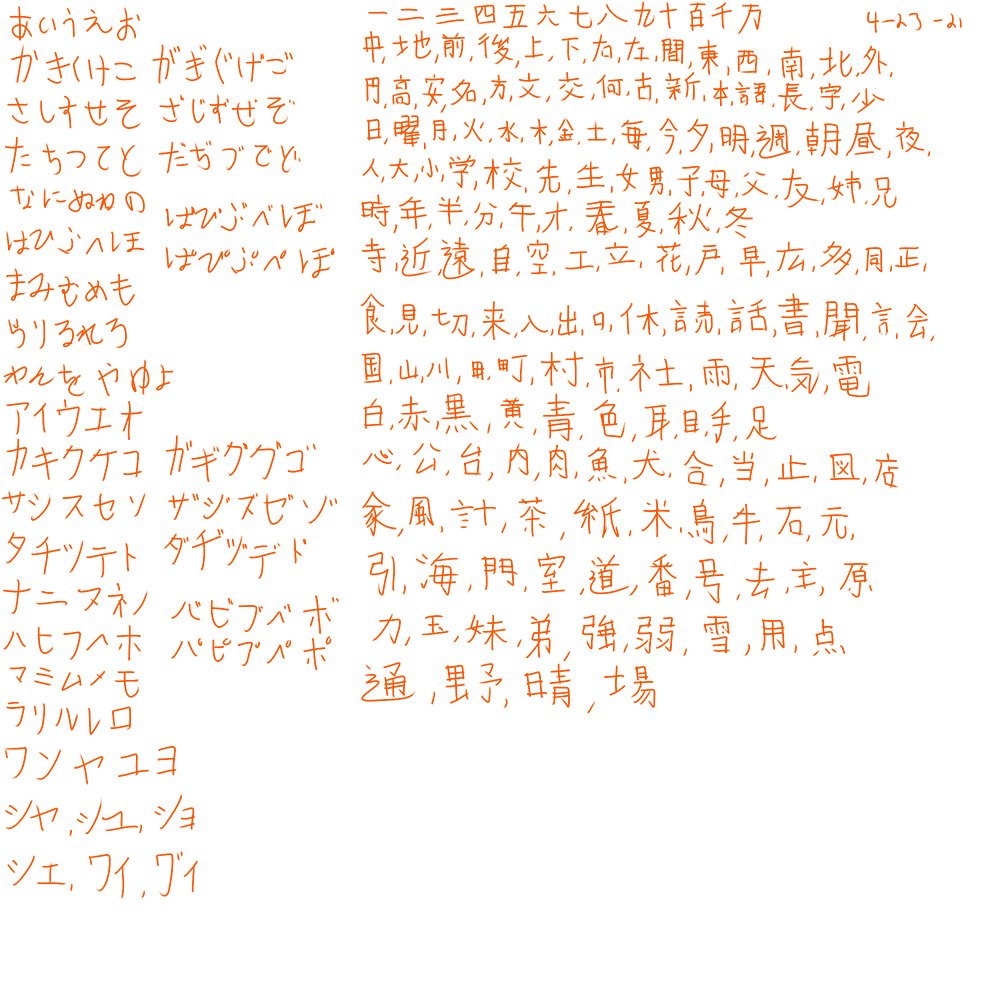 あいうえお
かきくけこ がぎぐげご
さしすせそ ざじずぜぞ
たちつてと だぢづでど
なにぬねの
はひふへほ ばびぶべぼ
ぱぴぷぺぽ
まみむめも
らりるれろ
わんを やゆよ
アイウエオ
カキクケコ ガギグゲゴ
サシスセソ ザジズゼゾ
タチツテト ダヂヅデド
ナニヌネノ
ハヒフヘホ バビブベボ
パピプペポ
マミムメモ
ラリルレロ
ワンヤユヨ
シャ,シュ,ショ
シェ,ワィ,ヴィ
4-23-21
一二三四五六七八九十百千万
中,地,前,後,上,下,右,左,間,東,西,南,北,外,
円,高,安,名,方,文,交,何,古,新,本,語,長,字,少
日,曜,月,火,水,木,金,土,毎,今,夕,明,週,朝,昼,夜,
人,大,小,学,校,先,生,女,男,子,母,父,友,姉,兄
時,年,半,分,午,才,春,夏,秋,冬
寺,近,遠,自,空,工,立,花,戸,早,広,多,同,正,
食,見,切,来,入,出,口,休,読,話,書,聞,言,会,
国,山,川,田,町,村,市,社,雨,天,気,電
白,赤,黒,黄,青,色,耳,目,手,足
心,公,台,内,肉,魚,犬,合,当,止,図,店
家,風,計,茶,紙,米,鳥,牛,石,元,
引,海,門,室,道,番,号,去,主,原
力,玉,妹,弟,強,弱,雪,用,点
通,野,晴,場